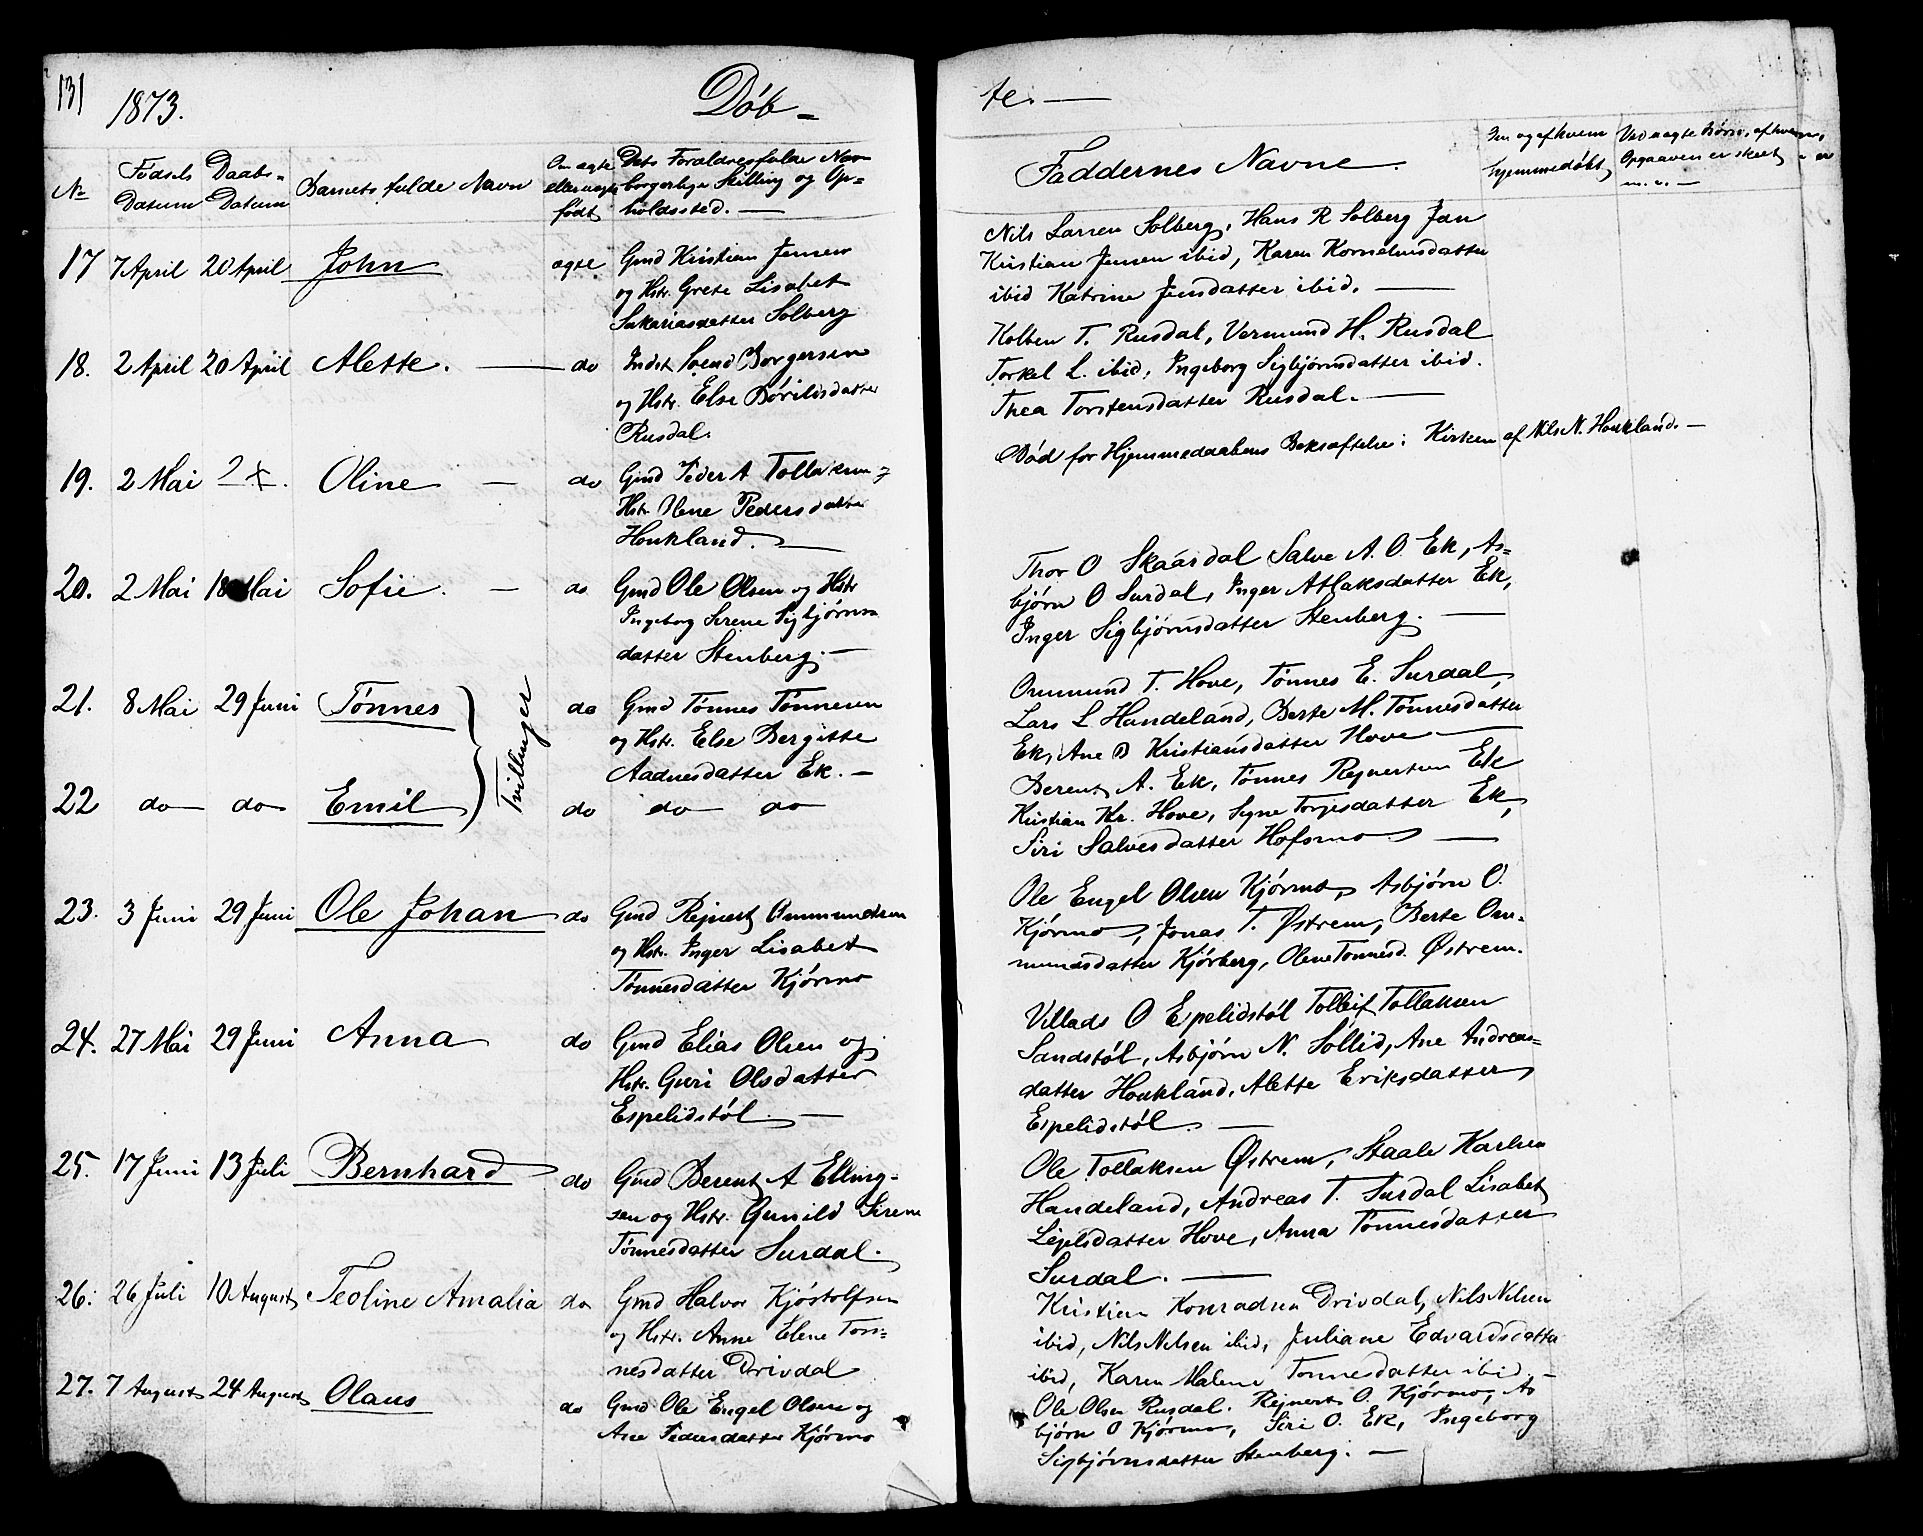 131
1873.
Döb-
№
Födsels Datum
Daabs-Datum
Barnets fulde Navn
Om ægte eller uægte födt
Dets Forældres fulde Navn borgerlige Stilling og Opholdssted. —
17 7 April 20 April John ægte Gmd Kristian Jensen
og Hstr. Grete Lisabet
Sakariasdatter Solberg
18. 2 April 20 April Alette. — do Indst Svend Borgersen
og Hstr. Else Börildsdatter
Rusdal.
19. 2 Mai Oline — do Gmd Peder A Tollaksen
Hstr Olene Pedersdatter
Houkland. —
20. 2 Mai 18 Mai Sofie. — do Gmd Ole Olsen og Hstr
Ingeborg Serene Sigbjörns
datter Stenberg. —
21. 8 Mai 29 Juni Tönnes do Gmd Tönnes Tönnesen
og Hstr. Else Bergitte
Aadnesdatter Ek. —
Tvillinger
22 do do Emil do do do
23. 3 Juni 29 Juni Ole Johan do Gmd Rejnert Ommundsen
og Hstr. Inger Lisabet
Tönnesdatter Kjörmo
24. 27 Mai 29 Juni Anna do Gmd Elias Olsen og
Hstr. Guri Olsdatter
Espelidstöl. —
25. 17 Juni 13 Juli Bernhard do Gmd Berent A Elling-
sen og Hstr. Gunild Serene
Tönnesdatter Surdal.
26. 26 Juli 10 August Teoline Amalia do Gmd Halvor Kjöstolfsen
og Hstr. Anne Elene Tön-
nesdatter Drivdal
27. 7 August 24 August Olaus do Gmd Ole Engel Olsen og
Ane Pedersdatter Kjörmo
te. —
Faddernes Navne.
Naar og af hvem hjemmedöbt
Ved uægte Börn, af hvem Opgaaven er skeet m. v. —
Nils Larsen Solberg, Hans R Solberg Jan
Kristian Jensen ibid, Karen Korneliusdatter
ibid Katrine Jensdatter ibid. —
Kolben T. Rusdal, Vermund H. Rusdal
Torkel L. ibid, Ingeborg Sigbjörnsdatter ibid.
Thea Torstensdatter Rusdal. —
Död för Hjemmedaabens Bekræftelse i Kirken af Nils N. Houkland. —
Thor O Skaardal Salve A. O. Ek, As-
björn O Surdal, Inger Atlaksdatter Ek,
Inger Sigbjörnsdatter Stenberg. —
Ommund T. Hove, Tönnes E. Surdal,
Lars L Handeland, Berte M. Tönnesdatter
Ek, Ane B Kristiansdatter Hove
Berent A. Ek, Tönnes Rejnertsen Ek
Kristian Kr. Hove, Signe Torjesdatter Ek,
Siri Salvesdatter Hofsmo —
Ole Engel Olsen Kjörmo, Asbjörn O.
Kjörmo, Jonas T. Østrem, Berte Om-
mundsdatter Kjörberg, Olene Tönnesd. Østrem.
Villads O Espelidstöl Tolleif Tollaksen
Sandstöl, Asbjörn N. Söllid, Ane Andreas-
datter Houkland, Alette Eriksdatter
Espelidstöl. —
Ole Tollaksen Østrem, Staale Karlsen
Handeland, Andreas T. Surdal Lisabet
Lejelsdatter Hove, Anna Tönnesdatter
Surdal. —
Kristian Konradsen Drivdal, Nils Nilsen
ibid, Nils Nilsen ibid, Juliane Edvardsdatter
ibid, Karen Malene Tönnesdatter ibid. —
Ole Olsen Rusdal. Rejnert O. Kjörmo, As
björn O Kjörmo, Siri O. Ek, Ingeborg
Sigbjörnsdatter Stenberg. —